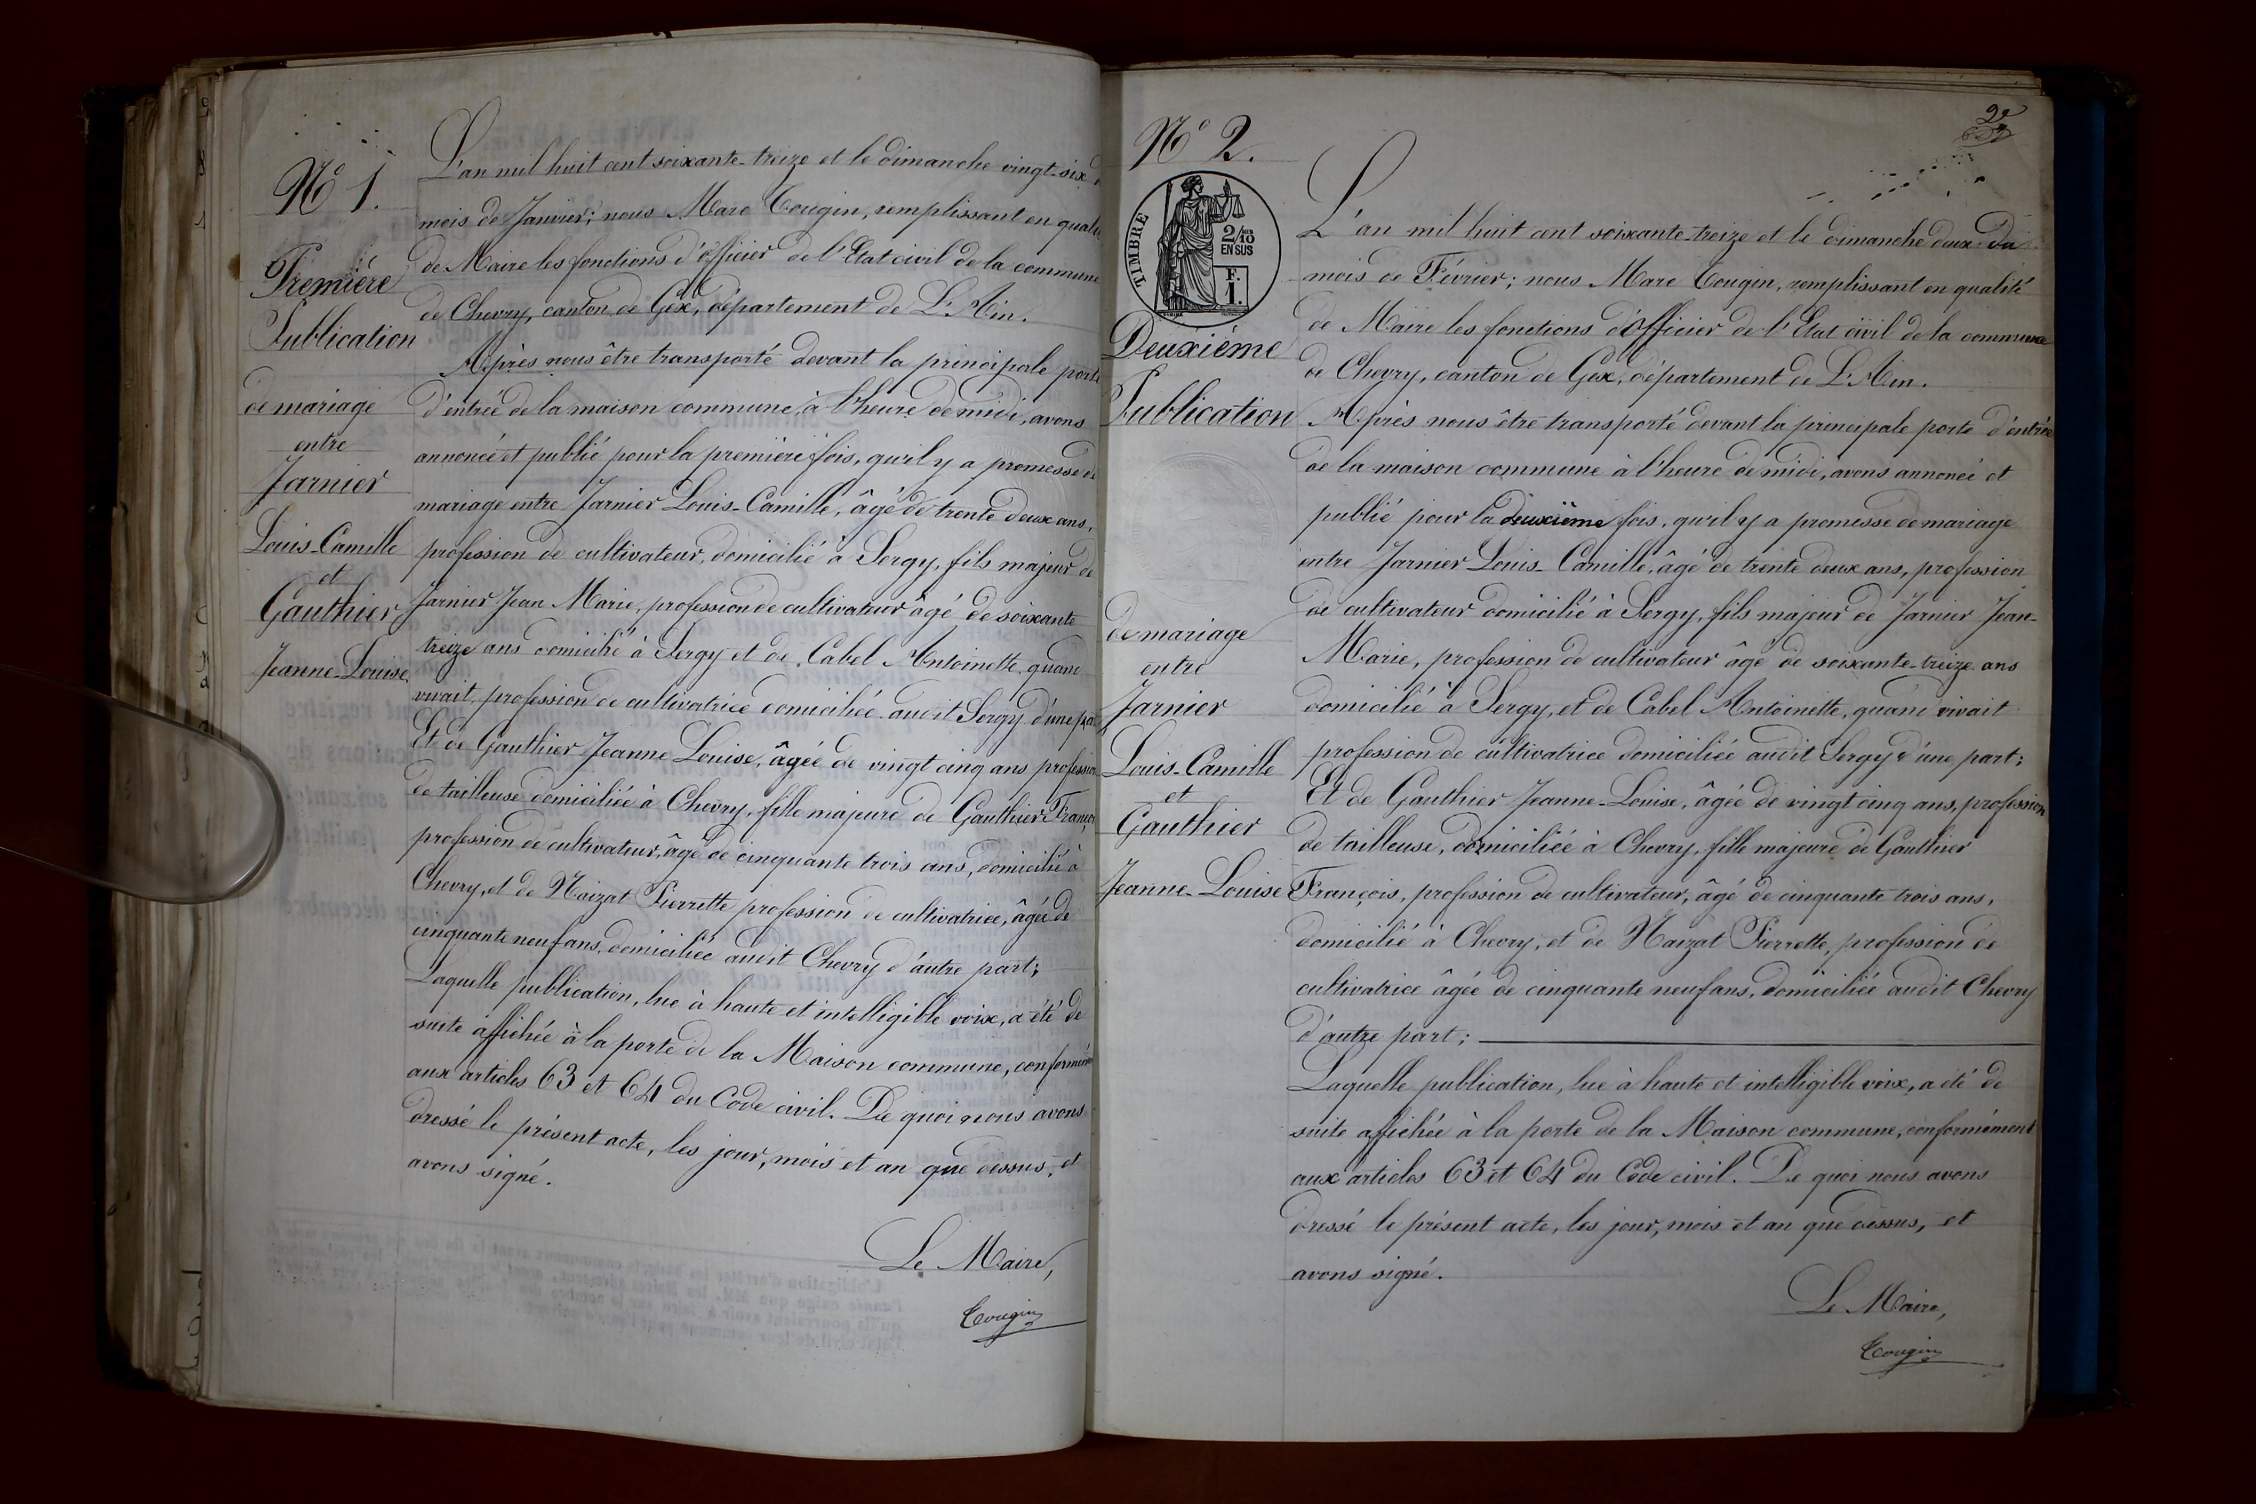 N° 1.
Première
Publication
de mariage
entre
Jarnier
Louis-Camille
et
Gauthier
Jeanne-Louise
L'an mil huit cent soixante-treize et le dimanche vingt-six
mois de Janvier; nous Marc Tougin, remplissant en qualité
de Maire les fonctions d'officier de l'Etat civil de la commune
de Chevry, canton de Gex, département de L'Ain.
Après nous être transporté devant la principale porte
d'entrée de la maison commune, à l'heure de midi, avons
annoncé et publié pour la première fois, qu'il y a promesse de
mariage entre Jarnier Louis-Camille, âgé de trente deux ans,
profession de cultivateur, domicilié à Sergy, fils majeur de
Jarnier Jean Marie, profession de cultivateur âgé de soixante
treize ans domicilié à Sergy et de Cabel Antoinette quand
vivait, profession de cultivatrice domiciliée audit Sergy d'une part
Et de Gauthier Jeanne Louise, âgée de vingt cinq ans profession
de tailleuse domiciliée à Chevry, fille majeure de Gauthier François
profession de cultivateur, âgé de cinquante trois ans, domicilié à
Chevry, et de Naizat Pierrette profession de cultivatrice, âgée de
cinquante neuf ans, domiciliée audit Chevry d'autre part;
Laquelle publication, lue à haute et intelligible voix, a été de
suite affichée à la porte de la Maison commune, conformément
aux articles 63 et 64 du Code civil. De quoi nous avons
dressé le présent acte, les jour, mois et an que dessus, et
avons signé.
Le Maire,
Tougin
2e
N° 2.
TIMBRE
2/10
EN SUS
F.
1.
Deuxième
Publication
de mariage
entre
Jarnier
Louis-Camille
et
Gauthier
Jeanne-Louise
L'an mil huit cent soixante-treize et le dimanche deux du
mois de Février; nous Marc Tougin, remplissant en qualité
de Maire les fonctions d'Officier de l'Etat civil de la commune
de Chevry, canton de Gex, département de L'Ain.
Après nous être transporté devant la principale porte d'entrée
de la maison commune à l'heure de midi, avons annoncé et
publié pour la deuxième fois, qu'il y a promesse de mariage
entre Jarnier Louis-Camille, âgé de trente deux ans, profession
de cultivateur domicilié à Sergy, fils majeur de Jarnier Jean-
Marie, profession de cultivateur âgé de soixante-treize ans
domicilié à Sergy, et de Cabel Antoinette, quand vivait
profession de cultivatrice domiciliée audit Sergy d'une part;
Et de Gauthier Jeanne-Louise, âgée de vingt cinq ans, profession
de tailleuse, domiciliée à Chevry, fille majeure de Gauthier
François, profession de cultivateur, âgé de cinquante trois ans,
domicilié à Chevry, et de Naizat Pierrette, profession de
cultivatrice âgée de cinquante neuf ans, domiciliée audit Chevry
d'autre part;
Laquelle publication, lue à haute et intelligible voix, a été de
suite affichée à la porte de la Maison commune, conformément
aux articles 63 et 64 du Code civil. De quoi nous avons
dressé le présent acte, les jour, mois et an que dessus, et
avons signé.
Le Maire,
Tougin